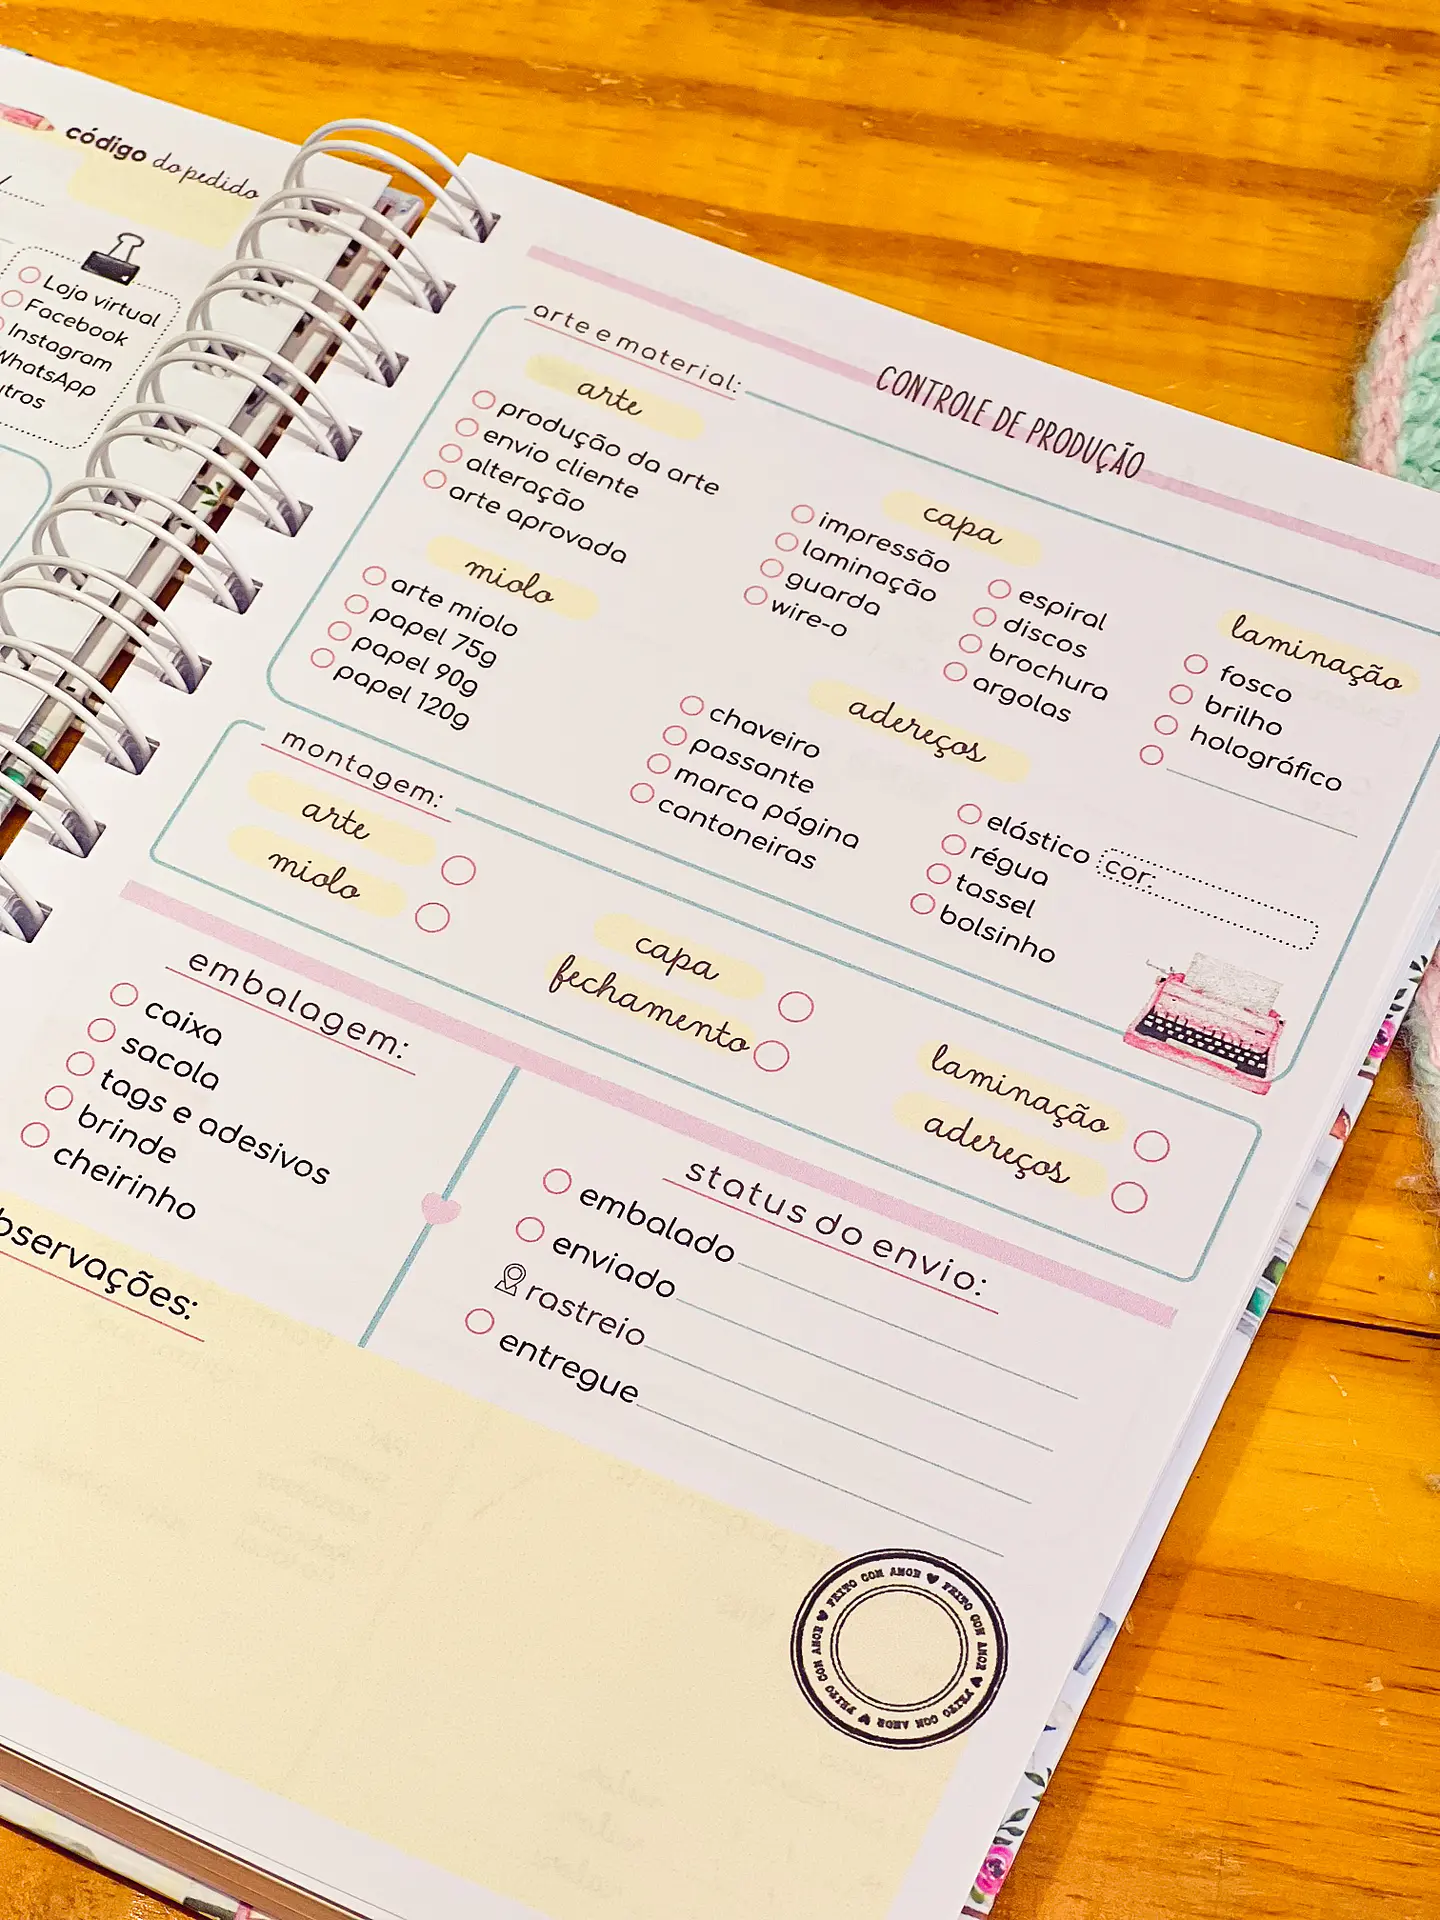 código do pedido
Loja virtual
Facebook
Instagram
WhatsApp
CONTROLE DE PRODUÇÃO
arte e material:
arte
produção da arte
envio cliente
alteração
arte aprovada
miolo
arte miolo
papel 75g
papel 90g
papel 120g
capa
impressão
laminação
guarda
wire-o
espiral
discos
brochura
argolas
laminação
fosco
brilho
holográfico
adereços
chaveiro
passante
marca página
cantoneiras
elástico cor:
régua
tassel
bolsinho
montagem:
arte
miolo
capa
fechamento
laminação
adereços
embalagem:
caixa
sacola
tags e adesivos
brinde
cheirinho
status do envio:
embalado
enviado
rastreio
entregue
bservações:
FEITO COM AMOR FEITO COM AMOR FEITO COM AMOR FEITO COM AMOR